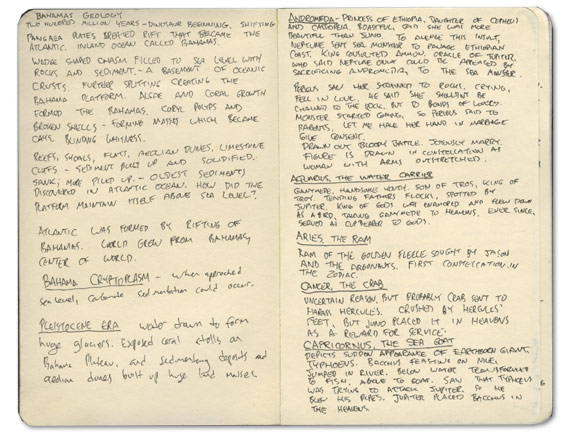 BAHAMAS GEOLOGY
TWO HUNDRED MILLION YEARS - DINOSAUR BEGINNING, SHIFTING
PANGAEA PLATES CREATED RIFT THAT BECAME THE
ATLANTIC. INLAND OCEAN CALLED BAHAMAS.
WEDGE SHAPED CHASM FILLED TO SEA LEVEL WITH
ROCKS AND SEDIMENT. - A BASEMENT OF OCEANIC
CRUSTS, FURTHER SPLITTING CREATING THE
BAHAMA PLATFORM. ALGAE AND CORAL GROWTH
FORMED THE BAHAMAS. CORAL POLYPS AND
BROKEN SHELLS - FORMING MASSES WHICH BECAME
CAYS. BLINDING WHITNESS.
REEFS, SHOALS, FLATS, AEOLIAN DUNES, LIMESTONE
CLIFFS - SEDIMENT BUILT UP AND SOLIDIFIED.
SANK, MORE PILED UP. - OLDEST SEDIMENTS
DISCOVERED IN ATLANTIC OCEAN. HOW DID THE
PLATFORM MAINTAIN ITSELF ABOVE SEA LEVEL?
ATLANTIC WAS FORMED BY RIFTING OF
BAHAMAS. WORLD GREW FROM BAHAMAS,
CENTER OF WORLD.
BAHAMA CRYPTOPLASM - when approached
sea level, carbonate sedimentation could occur.
PLEISTOCENE ERA water drawn to form
huge glaciers. Exposed coral atolls on
Bahama Plateau, and sedimentary deposits and
aeolian dunes built up huge land masses.
ANDROMEDA - PRINCESS OF ETHIOPIA, DAUGHTER OF CEPHEUS
AND CASSIOPEIA. BOASTFUL, DID SHE WAS MORE
BEAUTIFUL THAN JUNO. TO AVENGE THIS INSULT,
NEPTUNE SENT SEA MONSTER TO RAVAGE ETHIOPIAN
COAST. KING CONSULTED AMMON, ORACLE OF JUPITER,
WHO SAID NEPTUNE COULD ONLY BE APPEASED BY
SACRIFICING ANDROMEDA, TO THE SEA MONSTER
PERSEUS SAW HER CHAINED TO ROCKS, CRYING,
FELL IN LOVE. HE SAID SHE SHOULDN'T BE
CHAINED TO THE ROCK, BUT TO BONDS OF LOVERS.
MONSTER STARTED COMING, SO PERSEUS SAID TO
PARENTS, LET ME HAVE HER HAND IN MARRIAGE
GIVE CONSENT.
DRAWN OUT BLOODY BATTLE. JOYOUSLY MARRY.
FIGURE IS DRAWN IN CONSTELLATION AS
WOMAN WITH ARMS OUTSTRETCHED.
AQUARIUS, THE WATER CARRIER
GANYMEDE, HANDSOME YOUTH, SON OF TROS, KING OF
TROY. TENDING FATHERS FLOCKS, SPOTTED BY
JUPITER. KING OF GODS WAS ENAMORED AND FLEW DOWN
AS A BIRD, TAKING GANYMEDE TO HEAVENS, EVER SINCE,
SERVED AS CUPBEARER TO GODS.
ARIES, THE RAM
RAM OF THE GOLDEN FLEECE SOUGHT BY JASON
AND THE ARGONAUTS. FIRST CONSTELLATION IN
THE ZODIAC.
CANCER, THE CRAB
UNCERTAIN REASON, BUT PROBABLY CRAB SENT TO
HARASS HERCULES. CRUSHED BY HERCULES'
FEET, BUT JUNO PLACED IT IN HEAVENS
AS A REWARD FOR SERVICE.
CAPRICORNUS, THE SEA GOAT
DEPICTS SUDDEN APPEARANCE OF EARTHBORN GIANT,
TYPHOEUS. BACCHUS FEASTING ON NILE,
JUMPED IN RIVER. BELOW WATER TRANSFORMED
TO FISH, ABOVE TO GOAT. SAW THAT TYPHOEUS
WAS TRYING TO ATTACK JUPITER, SO HE
BLEW HIS PIPES. JUPITER PLACED BACCHUS IN
THE HEAVENS.